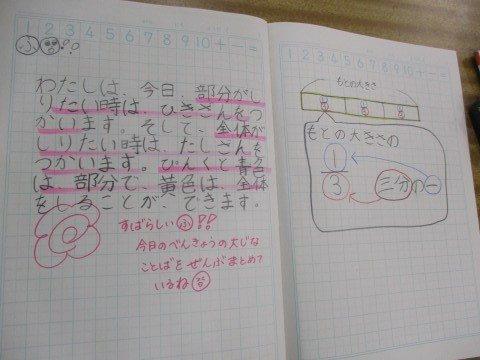 1 2 3 4 5 6 7 8 9 10 + − =
ふ !!
わたしは、今日、部分がし
りたい時は、ひきざんをつ
かいます。そして、全体が
しりたい時は、たしざんを
つかいます。ぴんくと青色
は、部分で、黄色は、全体
をしることが、できます。
すばらしいふ!!
今日のべんきょうの大じな
ことばをぜんぶまとめて
いるね
1 2 3 4 5 6 7 8 9 10 + − =
もとの大きさ
もとの大きさの
1
3
三分の一